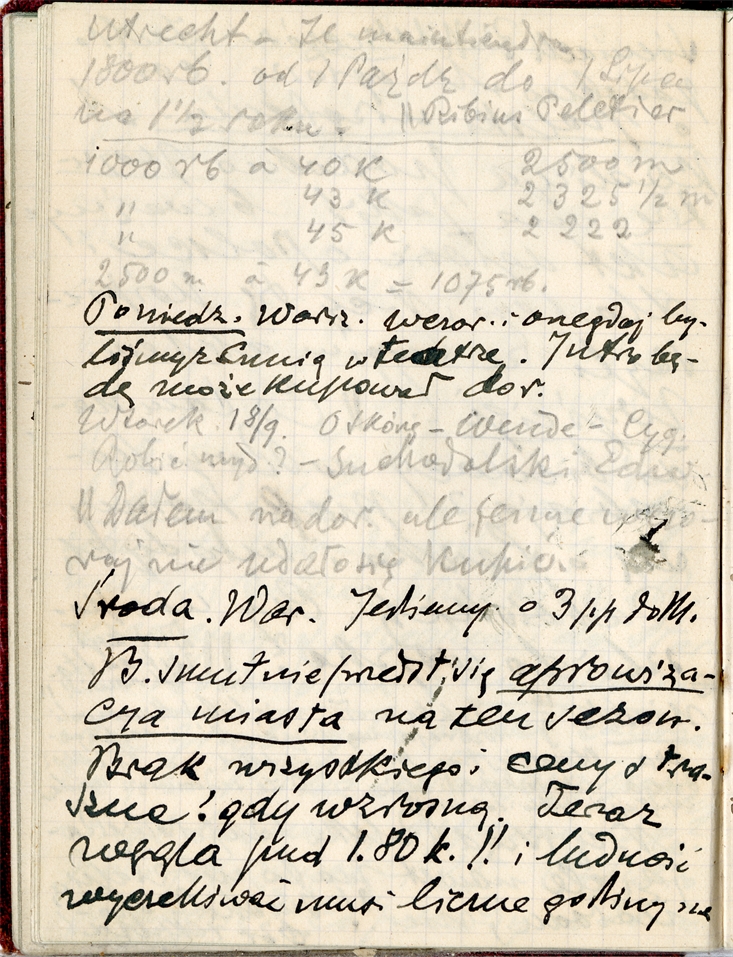 Utrecht - Je maintiendrai
1800 rb. od 1 Paźdz do 1 Lipca
na 1 1/2 roku. || Ribius Peletier
1000 rb à 40 K 2500 m
" 43 K 2325 1/2 m
" 45 K 2222
2500 m. à 43 K = 1075 rb.
Poniedz. Warsz. wczor. i onegdaj by-
liśmy z Ennią w teatrze. Jutro bę-
dę może kupował dor.
Wtorek. 18/9. - Wende - Cyg.
Robić wyd? - Suchodolski Edw
|| Dałem na dor. ale
raj nie udało się kupić
Środa. War. Jedziemy o 3 pp do M.
B. smutnie przedst. się aprowiza-
cya miasta na ten sezon.
Brak wszystkiego i ceny stra-
szne! gdy wzrosną. Teraz
węgla pud 1.80 k.!! i ludność
wyczekiwać musi liczne godziny na